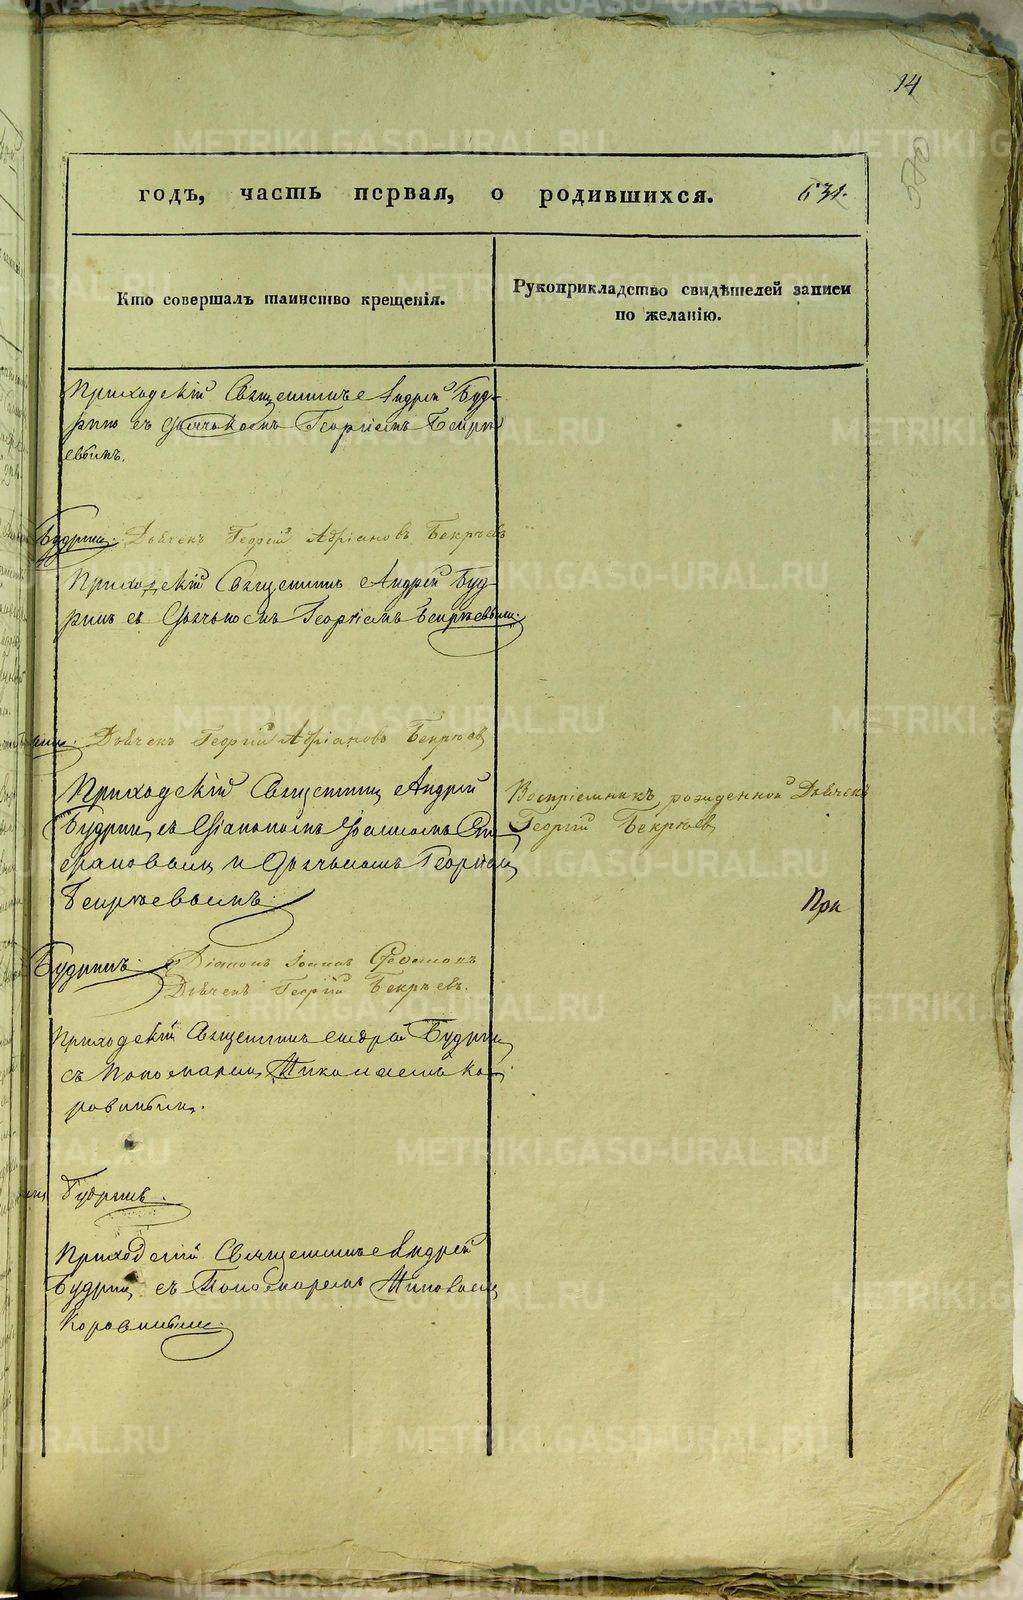 14
580
годъ, часть первая, о родившихся. 631.
Кто совершалъ таинство крещенія.
Рукоприкладство свидѣтелей записи
по желанію.
Приходскій Священникъ Андрей Буд-
ринъ съ Дьячькомъ Георгіемъ Бекрѣ
евымъ.
Будрин. Дьячек Георгій Адріановъ Бекрѣевъ
Приходскій Священникъ Андрей Буд-
ринъ съ Дьячькомъ Георгіемъ Бекрѣевым.
Дьячекъ Георгій Адріановъ Бекрѣев
Приходскій Священник Андрей
Будрин, съ Діакономъ Сте
фановым и Дьячькомъ Георгіем
Бекрѣевымъ.
Воспріемникъ Дьячек
Георгій Бекрѣев
При
Будринъ. Діаконъ Іоаннъ
Дьячекъ Георгій Бекрѣевъ.
Приходскій Священникъ Андрей Будрин
съ Пономарем Николаемъ Ко-
ровиным.
Будринъ.
Приходскій Священникъ Андрей
Будрин съ Пономаремъ Николаем
Коровиным.
METRIKI.GASO-URAL.RU